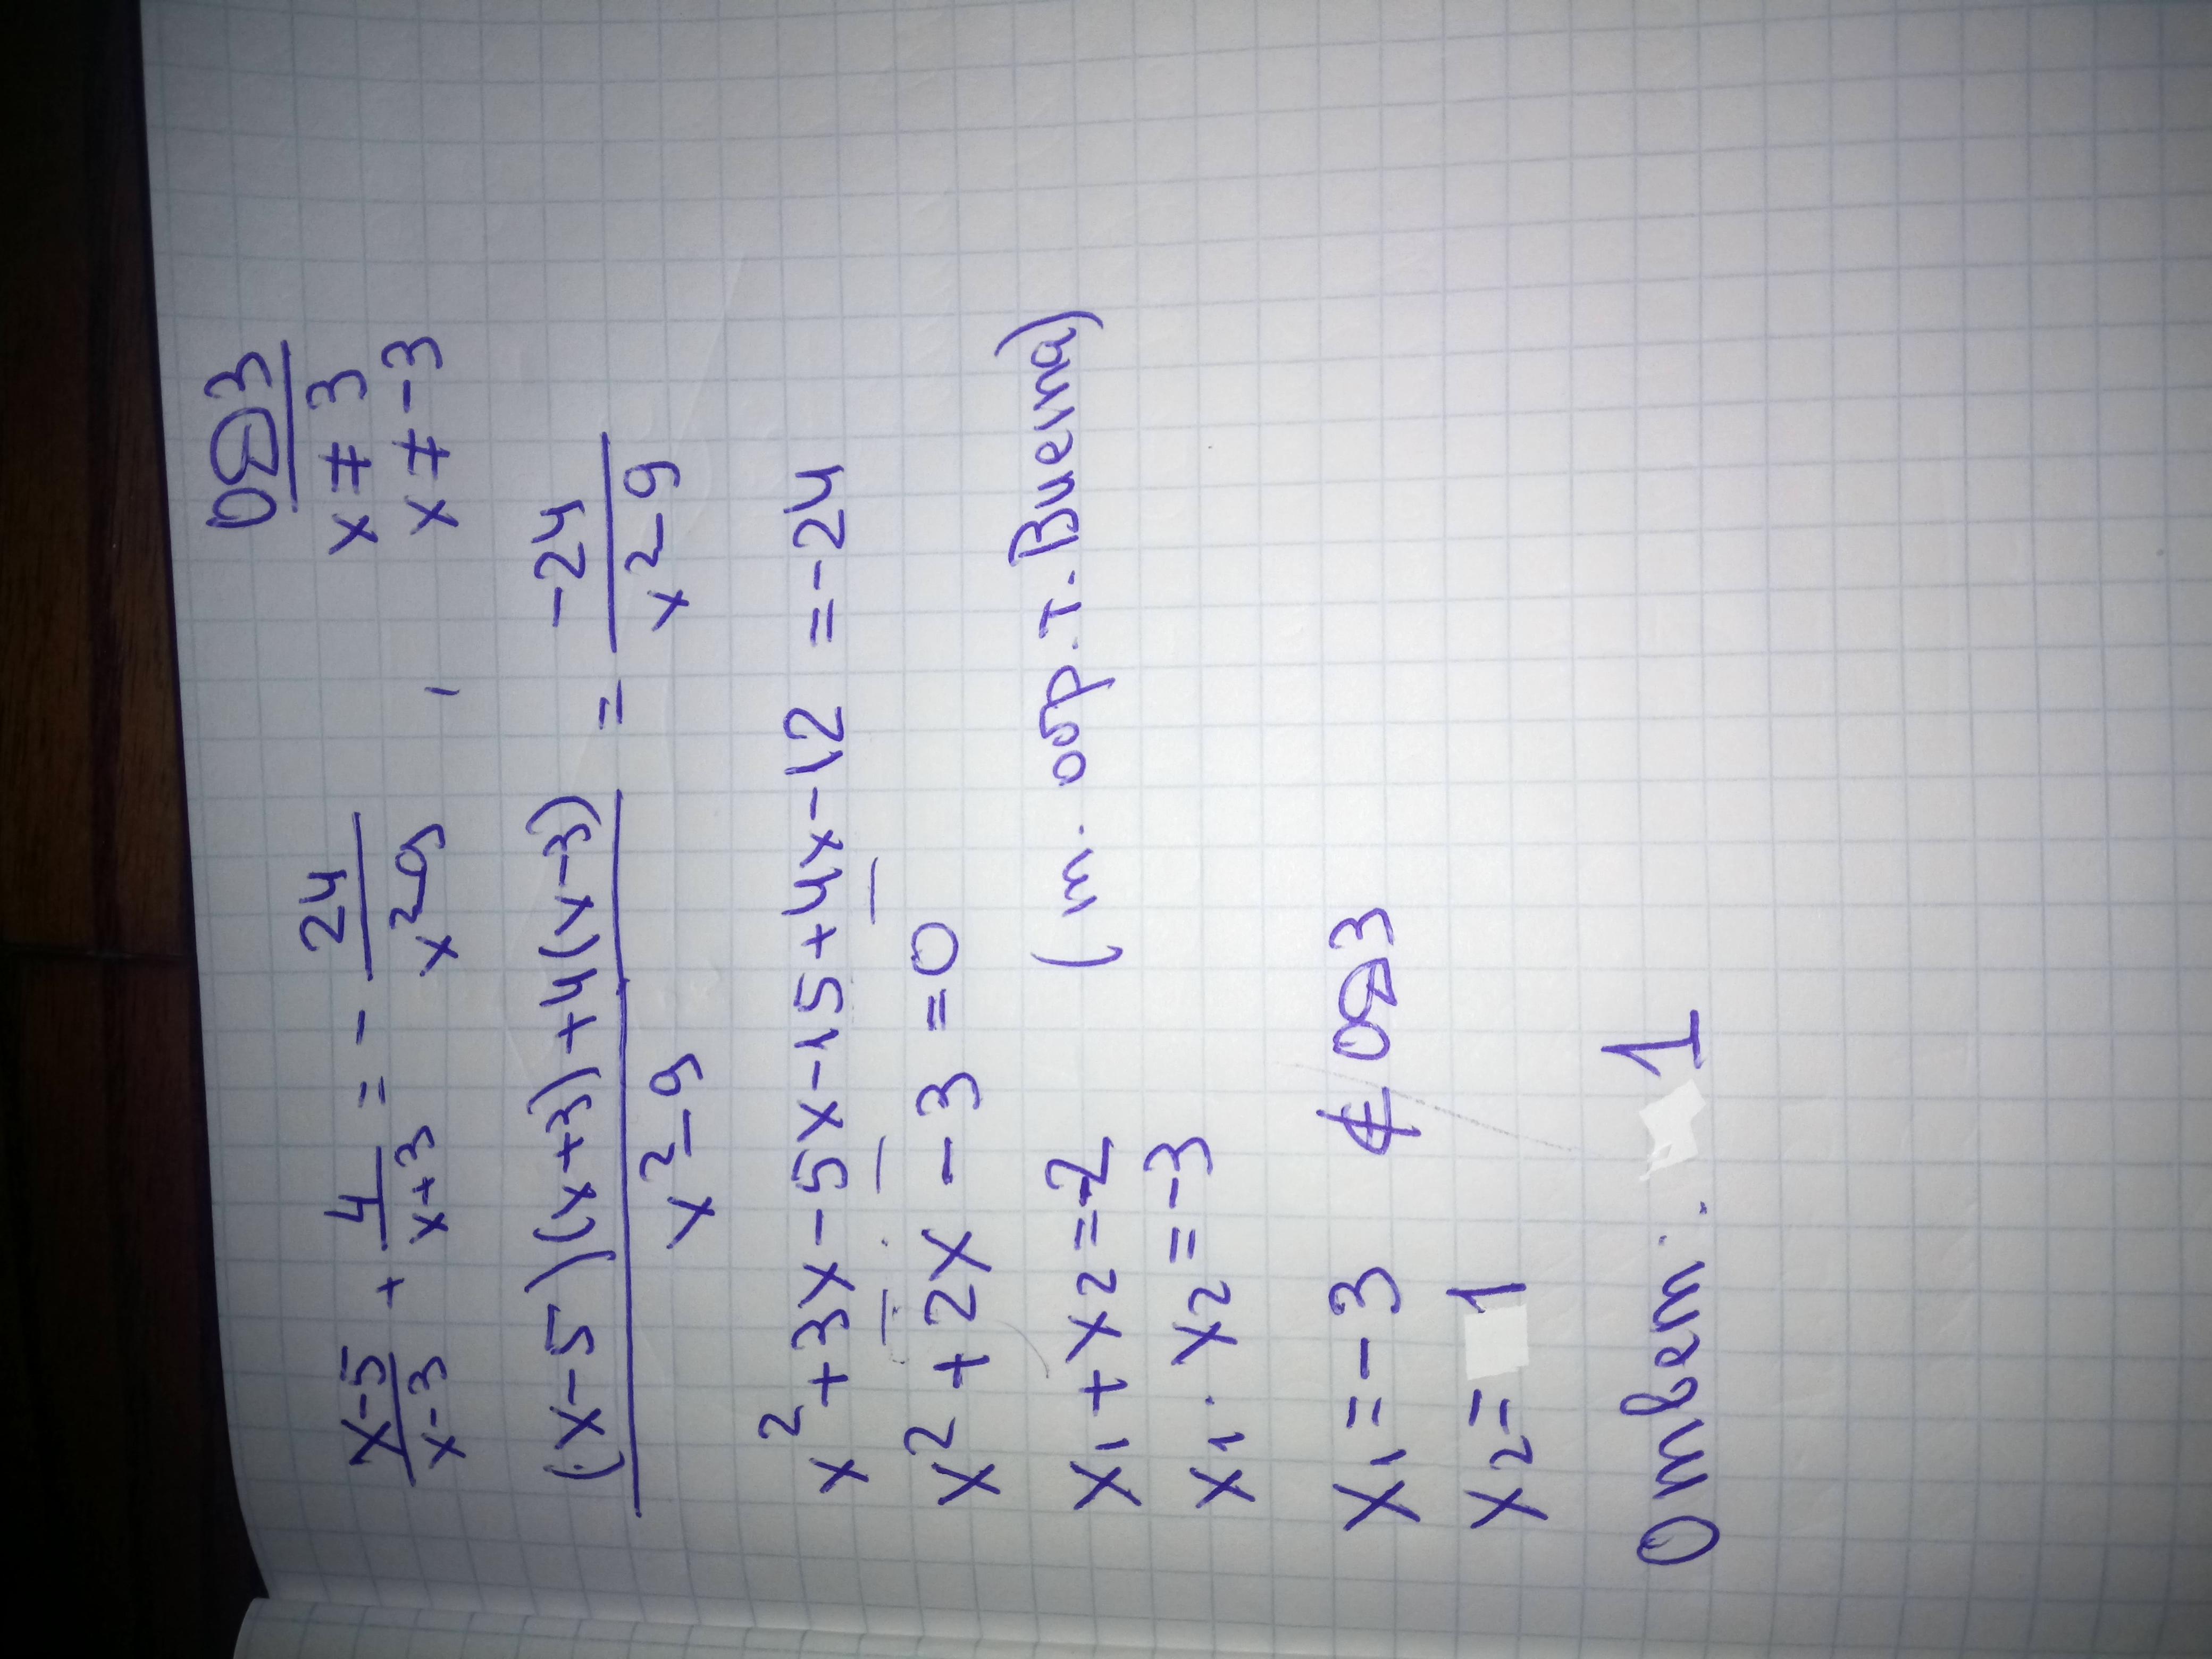 ОДЗ
x ≠ 3
x ≠ -3
x-5/x-3 + 4/x+3 = - 24/x²-9
(x-5)(x+3)+4(x-3)/x²-9 = -24/x²-9
x²+3x-5x-15+4x-12 = -24
x²+2x-3=0
x₁+x₂=-2 (т. обр. т. Виета)
x₁·x₂=-3
x₁=-3 ∉ ОДЗ
x₂=1
Ответ: 1